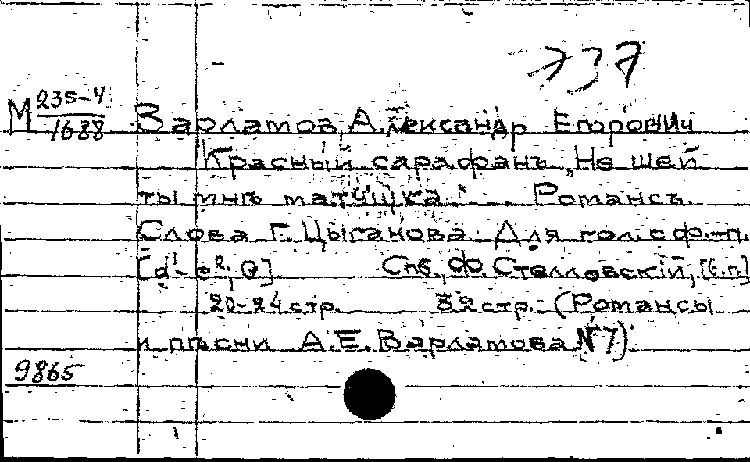 737
М 235-4
1688
Варламов, Александр Егорович
Красный сарафанъ „Не шей
ты мнѣ матушка"... Романсъ.
Слова Г. Цыганова. Для гол. с ф.-п.
[d¹-e², G]. Спб., Ф. Стелловскій, [б.г.]
20-24 стр. 82 стр. (Романсы
и пѣсни А.Е. Варламова №7).
9865